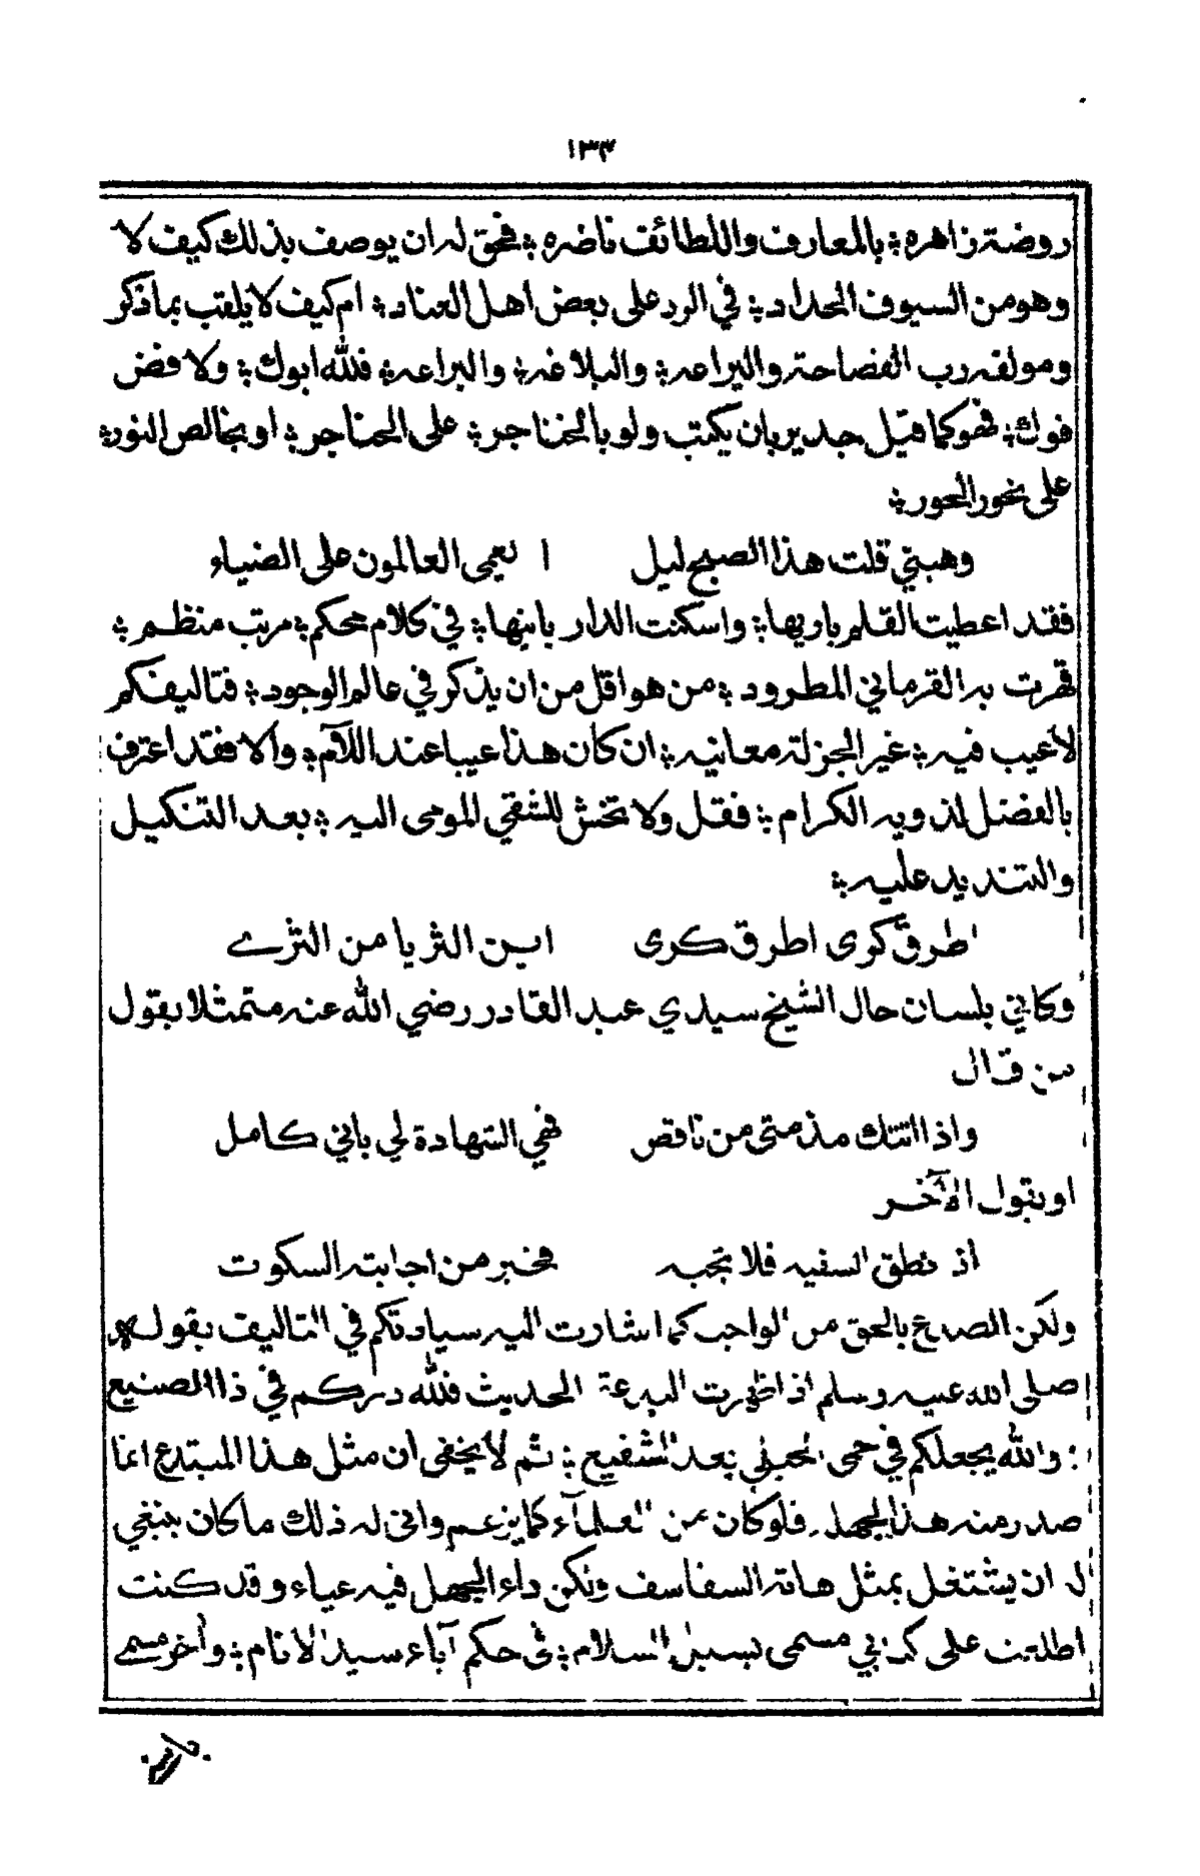 ١٣٣
روضة زاهره ؛ بالمعارف واللطائف ناضره ؛ فحق له ان يوصف بذلك كيف لا
وهو من السيوف الحداد ؛ في الرد على بعض اهل العناد ؛ ام كيف لا يلقب بما ذكر
ومولفه رب الفصاحة واليراعه ؛ والبلاغه ؛ والبراعه ؛ فلله ابوك ؛ ولا فض
فوك ؛ فهو كما قيل جدير بان يكتب ولو بالخناجر ؛ على الحناجر ؛ او بخالص النور ؛
على نحور الحور ؛
وهبني قلت هذا الصبح ليل ا يعمى العالمون على الضياء
فقد اعطيت القلم باريها ؛ واسكنت الدار بانيها ؛ في كلام محكم ؛ مرتب منظم ؛
قهرت به القرماني المطرود ؛ من هو اقل من ان يذكر في عالم الوجود ؛ فتاليفكم
لا عيب فيه ؛ غير الجزلة معانيه ؛ ان كان هذا عيبا عند اللآم ؛ والا فقد اعترف
بالفضل لذويه الكرام ؛ فقل ولا تخش للشقي المومى اليه ؛ بعد التنكيل
والتنديد عليه ؛
اطرق كرى اطرق كرى اين الثريا من الثرے
وكاني بلسان حال الشيخ سيدي عبد القادر رضي الله عنه متمثلا بقول
من قال
واذا اتتك مذمتى من ناقص فهي الشهادة لي باني كامل
او بقول الآخر
اذ نطق السفيه فلا تجبه فخير من اجابته السكوت
ولكن الصدع بالحق من الواجب كما اشارت اليه سيادتكم في التاليف بقوله
صلى الله عليه وسلم اذ اظهرت البدعة الحديث فلله دركم في ذا الصنيع
؛ والله يجعلكم في حمى الجيلي بعد الشفيع ؛ ثم لا يخفى ان مثل هذا المبتدع انما
صدر منه هذا لجهله فلو كان من العلمآء كما يزعم وانى له ذلك ما كان ينبغي
له ان يشتغل بمثل هاته السفاسف ولكن داء الجهل فيه عياء وقد كنت
اطلعت على كتابي مسمى بسبل السلام ؛ فى حكم آباء سيد الانام ؛ وأخر مسمے